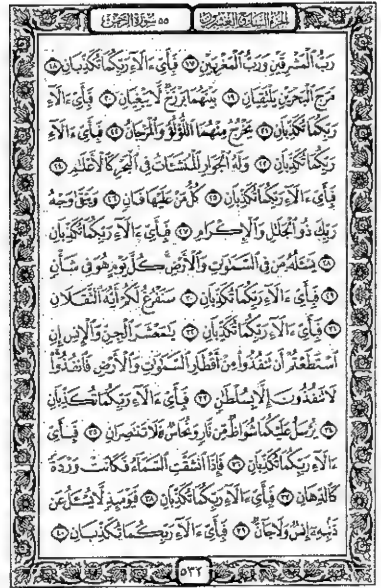 الجزء السابع والعشرون ٥٥ سورة الرحمن
رَبُّ ٱلْمَشْرِقَيْنِ وَرَبُّ ٱلْمَغْرِبَيْنِ ١٧ فَبِأَيِّ ءَالَآءِ رَبِّكُمَا تُكَذِّبَانِ ١٨
مَرَجَ ٱلْبَحْرَيْنِ يَلْتَقِيَانِ ١٩ بَيْنَهُمَا بَرْزَخٌ لَّا يَبْغِيَانِ ٢٠ فَبِأَيِّ ءَالَآءِ
رَبِّكُمَا تُكَذِّبَانِ ٢١ يَخْرُجُ مِنْهُمَا ٱللُّؤْلُؤُ وَٱلْمَرْجَانُ ٢٢ فَبِأَيِّ ءَالَآءِ
رَبِّكُمَا تُكَذِّبَانِ ٢٣ وَلَهُ ٱلْجَوَارِ ٱلْمُنشَـَٔاتُ فِى ٱلْبَحْرِ كَٱلْأَعْلَٰمِ ٢٤
فَبِأَيِّ ءَالَآءِ رَبِّكُمَا تُكَذِّبَانِ ٢٥ كُلُّ مَنْ عَلَيْهَا فَانٍ ٢٦ وَيَبْقَىٰ وَجْهُ
رَبِّكَ ذُو ٱلْجَلَٰلِ وَٱلْإِكْرَامِ ٢٧ فَبِأَيِّ ءَالَآءِ رَبِّكُمَا تُكَذِّبَانِ
٢٨ يَسْـَٔلُهُۥ مَن فِى ٱلسَّمَٰوَٰتِ وَٱلْأَرْضِ كُلَّ يَوْمٍ هُوَ فِى شَأْنٍ
٢٩ فَبِأَيِّ ءَالَآءِ رَبِّكُمَا تُكَذِّبَانِ ٣٠ سَنَفْرُغُ لَكُمْ أَيُّهَ ٱلثَّقَلَانِ
٣١ فَبِأَيِّ ءَالَآءِ رَبِّكُمَا تُكَذِّبَانِ ٣٢ يَٰمَعْشَرَ ٱلْجِنِّ وَٱلْإِنسِ إِنِ
ٱسْتَطَعْتُمْ أَن تَنفُذُوا۟ مِنْ أَقْطَارِ ٱلسَّمَٰوَٰتِ وَٱلْأَرْضِ فَٱنفُذُوا۟
لَا تَنفُذُونَ إِلَّا بِسُلْطَٰنٍ ٣٣ فَبِأَيِّ ءَالَآءِ رَبِّكُمَا تُكَذِّبَانِ
٣٤ يُرْسَلُ عَلَيْكُمَا شُوَاظٌ مِّن نَّارٍ وَنُحَاسٌ فَلَا تَنتَصِرَانِ ٣٥ فَبِأَيِّ
ءَالَآءِ رَبِّكُمَا تُكَذِّبَانِ ٣٦ فَإِذَا ٱنشَقَّتِ ٱلسَّمَآءُ فَكَانَتْ وَرْدَةً
كَٱلدِّهَانِ ٣٧ فَبِأَيِّ ءَالَآءِ رَبِّكُمَا تُكَذِّبَانِ ٣٨ فَيَوْمَئِذٍ لَّا يُسْـَٔلُ عَن
ذَنۢبِهِۦٓ إِنسٌ وَلَا جَآنٌّ ٣٩ فَبِأَيِّ ءَالَآءِ رَبِّكُمَا تُكَذِّبَانِ ٤٠
٥٣٢